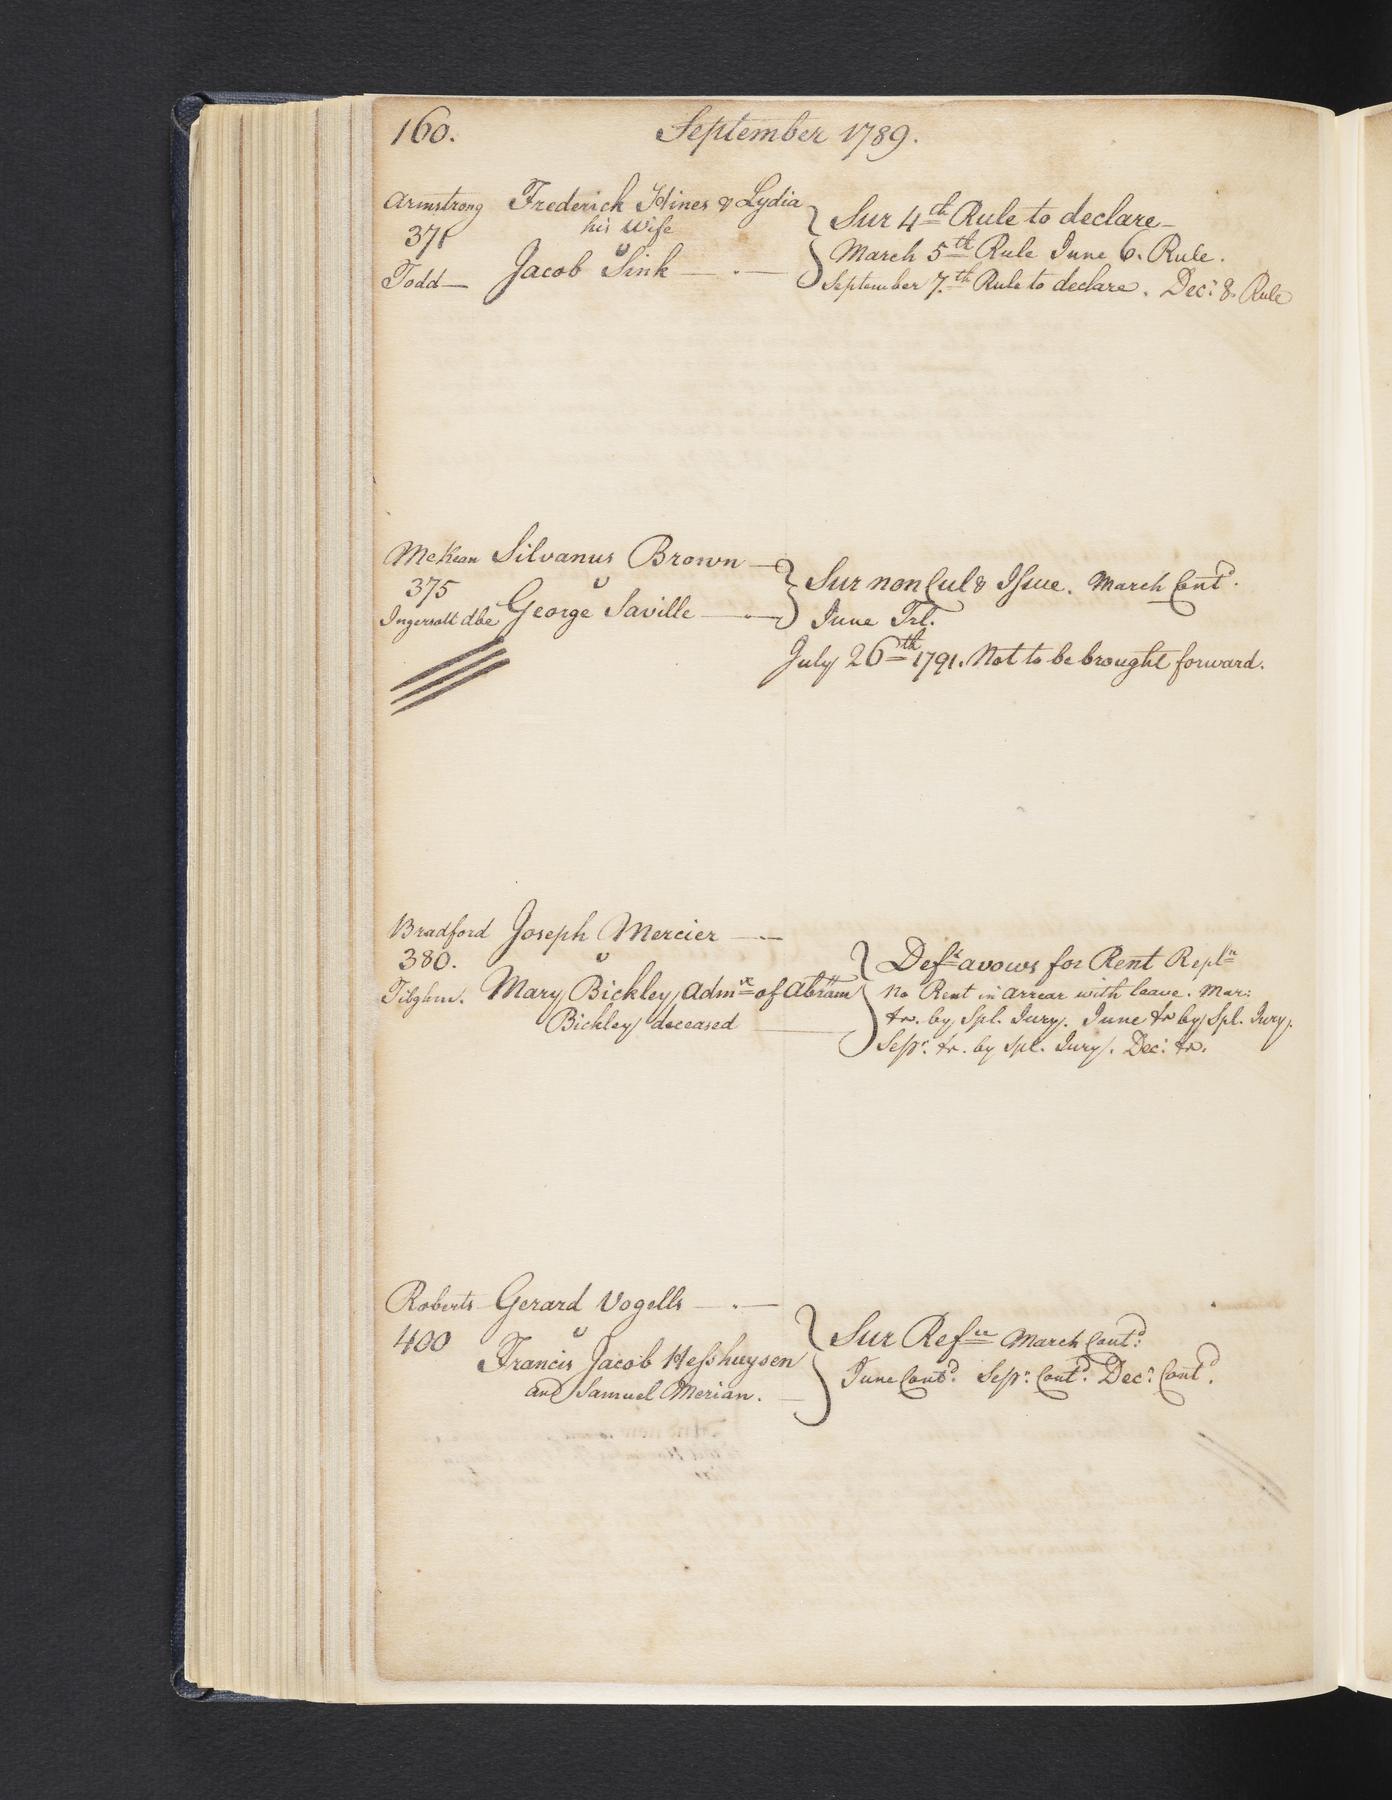 160. September 1789.
Armstrong Frederick Hines & Lydia
his Wife
371 v
Todd — Jacob Sink —
Sur 4th Rule to declare —
March 5th Rule June 6. Rule.
September 7.th Rule to declare. Decr 8. Rule
McKean Silvanus Brown —
375 v
Ingersoll dbe George Saville —
Sur non Cul & Issue. March Contd.
June Trl.
July 26th 1791. Not to be brought forward.
Bradford Joseph Mercier —
380. v
Tilghm. Mary Bickley Admx of Abram
Bickley deceased
Deft avows for Rent Repln
No Rent in Arrear with leave. Mar:
tr. by Spl. Jury. June tr by Spl. Jury.
Sepr. tr. by Spl. Jury. Dec: tr.
Roberts Gerard Vogells —
400 v
Francis Jacob Hesshuysen
and Samuel Merian. —
Sur Refce March Contd:
June Contd: Sepr: Contd: Decr: Contd.